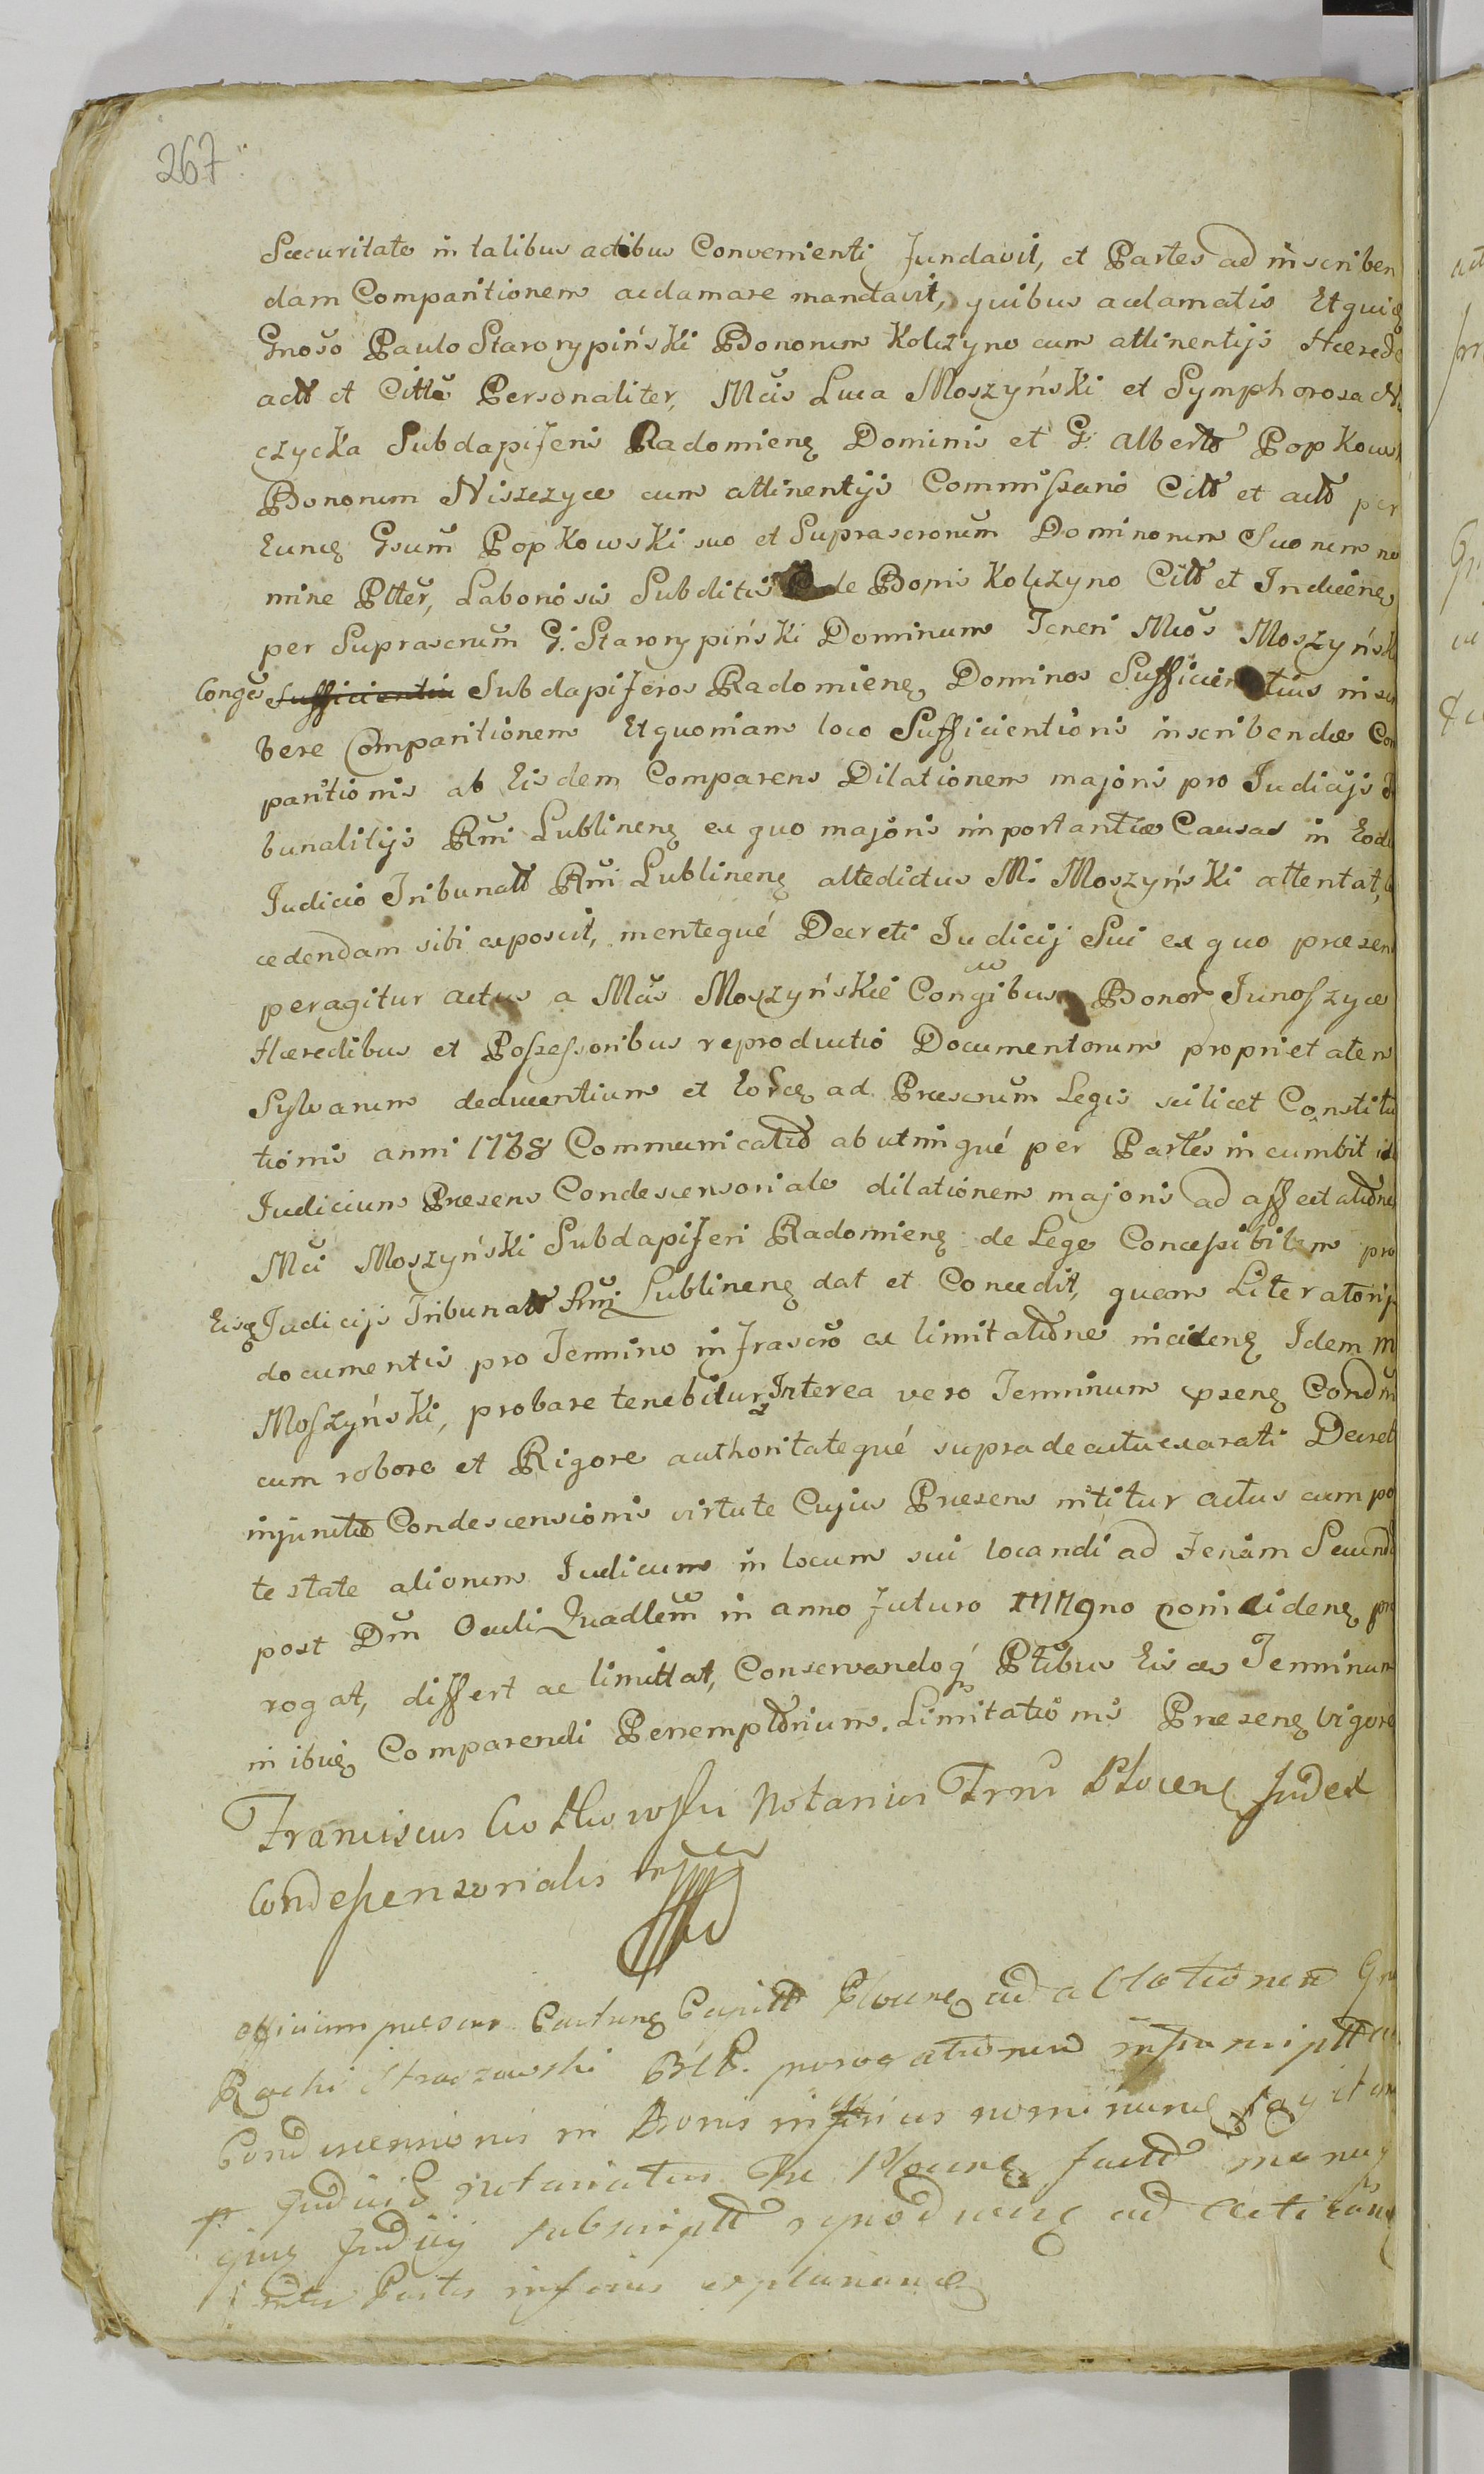 267
Securitate in talibus actibus Convenienti fundavit, et Partes ad inscriben
dam Comparitionem acclamare mandavit, quibus acclamatis Et quidẽ
Gnoso Paulo Starorypiński Bonorum Koliżyno cum attinentijs Hærede
actt et Citto Personaliter, Mcis Luca Moszyński et Symphorosa
czycka Subdapiferis Radomienę Dominis et G. Alberto PopKows
Bonorum Niszczyce cum attinentijs Commissario Citt et actt per
Eundę Gsum PopKowsKi suo et Suprascrorum Dominorum Suorum no
mine Ptter, Laboriosis Subditis de Bonis Koliżyno Citt et Inducenę
per Suprascrum G. Starorypiński Dominum Teneri Mcos Moszyńsk
Conges Sufficientiu Subdapiferos Radomienę Dominos Sufficientius inscri
bere Comparitionem Et quoniam loco Sufficientioris inscribendæ Com
paritionis ab Eisdem Comparens Dilationem majoris pro Judicijs
bunalitijs Rni Lublinenę ex quo majoris importantiæ Causas in Eod
Judicio Tribunall Rni Lublinenę attedictus M. Moszyński attentat,
cedendam sibi exposcit, mentequé Decreti Judicij Sui ex quo præsen
peragitur actus a Mcis Moszyńskie Congibus Bonor Junoszyce
Hæredibus et Possessoribus reproductio Documentorum proprietatem
Sylvarum deducentium et Eordę ad Præscrum Legis scilicet Constitu
tionis anni 1768 Communicatio ab utrinqué per Partes incumbit
Judicium Præsens Condescensoriale dilationem majoris ad affectatione
Mci Moszyński Subdapiferi Radomienę de Lege Concessibilem pro
Eisq Judicijs Tribunall Rni Lublinenę dat et Concedit, quam Literatorijs
documentis pro Termino infrascro ex limitatione incidenę Idem M
Moszyński, probare tenebitur, Interea vero Terminum præsenę Condni
cum robore et Rigore authoritatequé supradeactuexarati Decret
injuncto Condescensionis virtute Cujus Præsens nititur actus cum po
testate aliorum Judicum in locum sui locandi ad Feriam Secund
post Dm Oculi Quadlem in anno futuro 1779no coincidenę pro
rogat, differt ac limittat, Conservandoq Ptibus Eis Terminum
in ibidę Comparendi Peremptorium. Limitationis Præsenę vigore
Franciscus Notarius Trris Plocenę Judex
Condescensorialis mpp
Officium præsens Castrenę Capitt Plocenę ad allationem
Rochi prorogationem infrascriptt
Condescensionis in Bonis inferius
p Judicio notariatus Plocenę factt manuq
ejusq Judicij subscriptt reproducenę ad acticand
inter Partes inferius explanandę